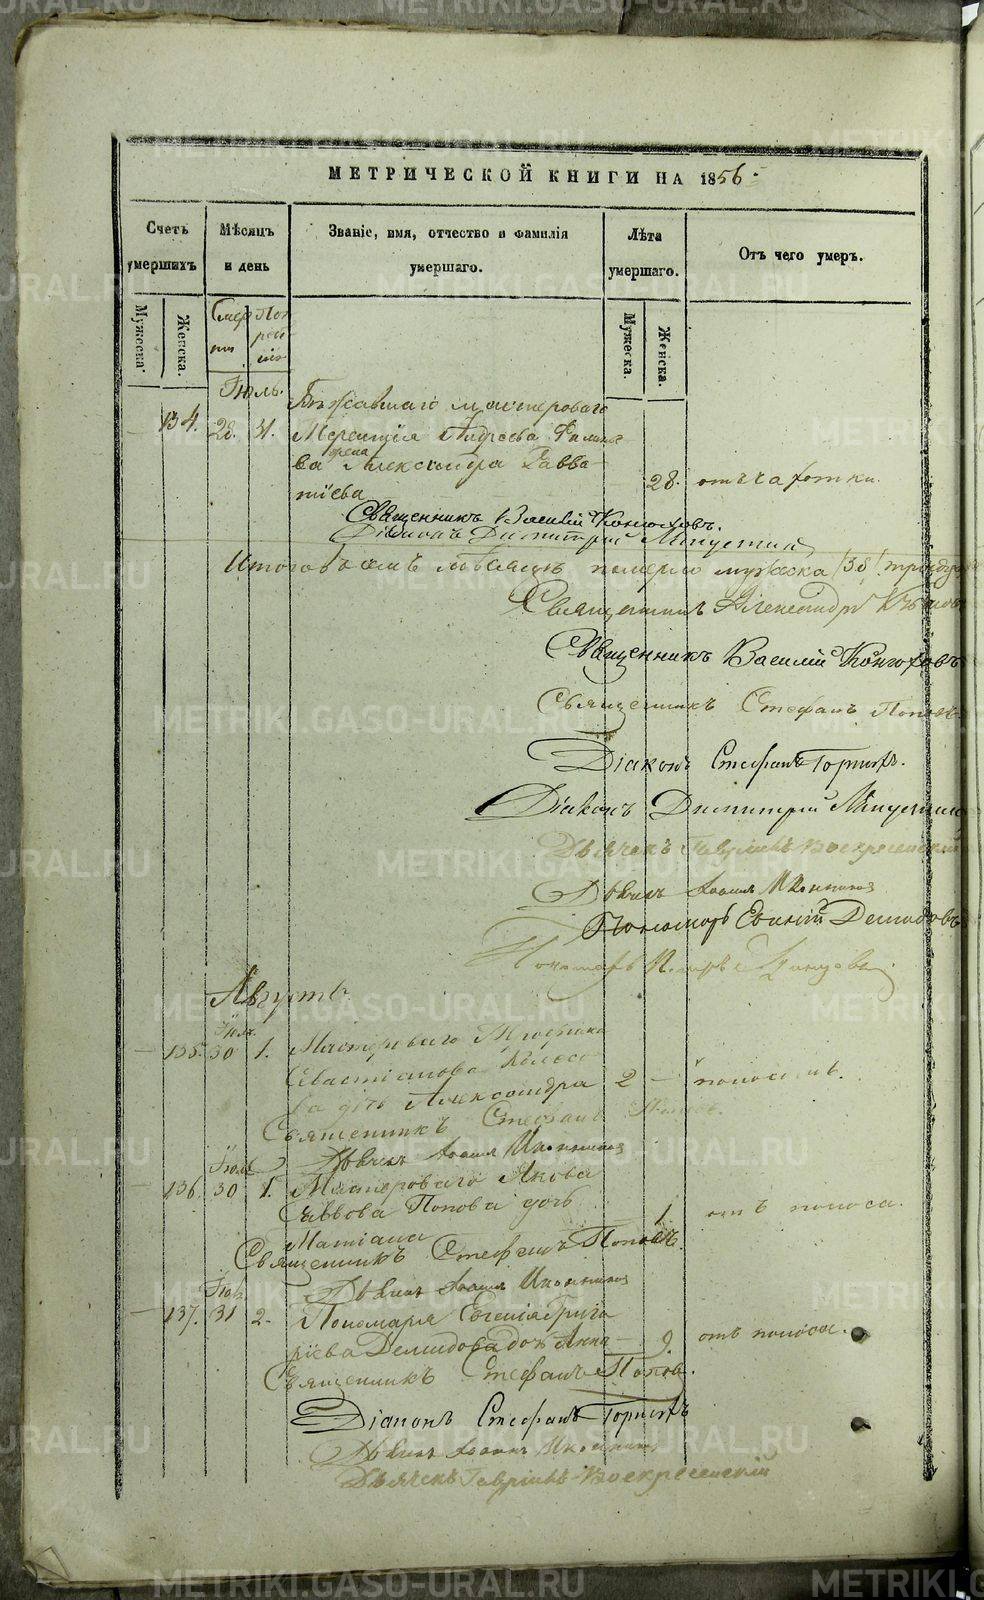 МЕТРИЧЕСКОЙ КНИГИ НА 1856.
Счетъ умершихъ
Мѣсяцъ и день
Званіе, имя, отчество и фамилія умершаго.
Лѣта умершаго.
Отъ чего умеръ.
Мужеска.
Женска.
Смерти
Погребенія
Мужеска.
Женска.
Іюль.
Бѣжавшаго мастероваго
134. 28. 31. Андреева
жена Александра Савва-
тіева 28. отъ чахотки.
Священникъ Василій Конюховъ.
Діаконъ Димитрій
Итого въ Іюлѣ мѣсяцѣ померло мужеска /38/
Священникъ Александръ
Священникъ Василій Конюховъ
Священникъ Стефанъ Поповъ
Діаконъ Стефанъ Горныхъ.
Діаконъ Димитрій
Дьячекъ Гавріилъ Воскресенскій
Дьячекъ Іоаннъ Иконниковъ
Пономарь Евгеній Демидовъ
Пономарь
Августъ
Іюля
135. 30 1. Мастероваго
Севастіанова
дочь Александра 2 — поносомъ.
Священникъ Стефанъ Поповъ.
Дьячекъ Іоаннъ Иконниковъ
Іюля
136. 30 1. Мастероваго Якова
Саввова Попова дочь
1. отъ поноса.
Священникъ Стефанъ Поповъ.
Дьячекъ Іоаннъ Иконниковъ
Іюл.
137. 31 2. Пономаря Евгенія Григо
ріева Демидова дочь Анна — 9. отъ поноса.
Священникъ Стефанъ Поповъ.
Діаконъ Стефанъ Горныхъ
Дьячекъ Іоаннъ Иконниковъ
Дьячекъ Гавріилъ Воскресенскій
METRIKI.GASO-URAL.RU